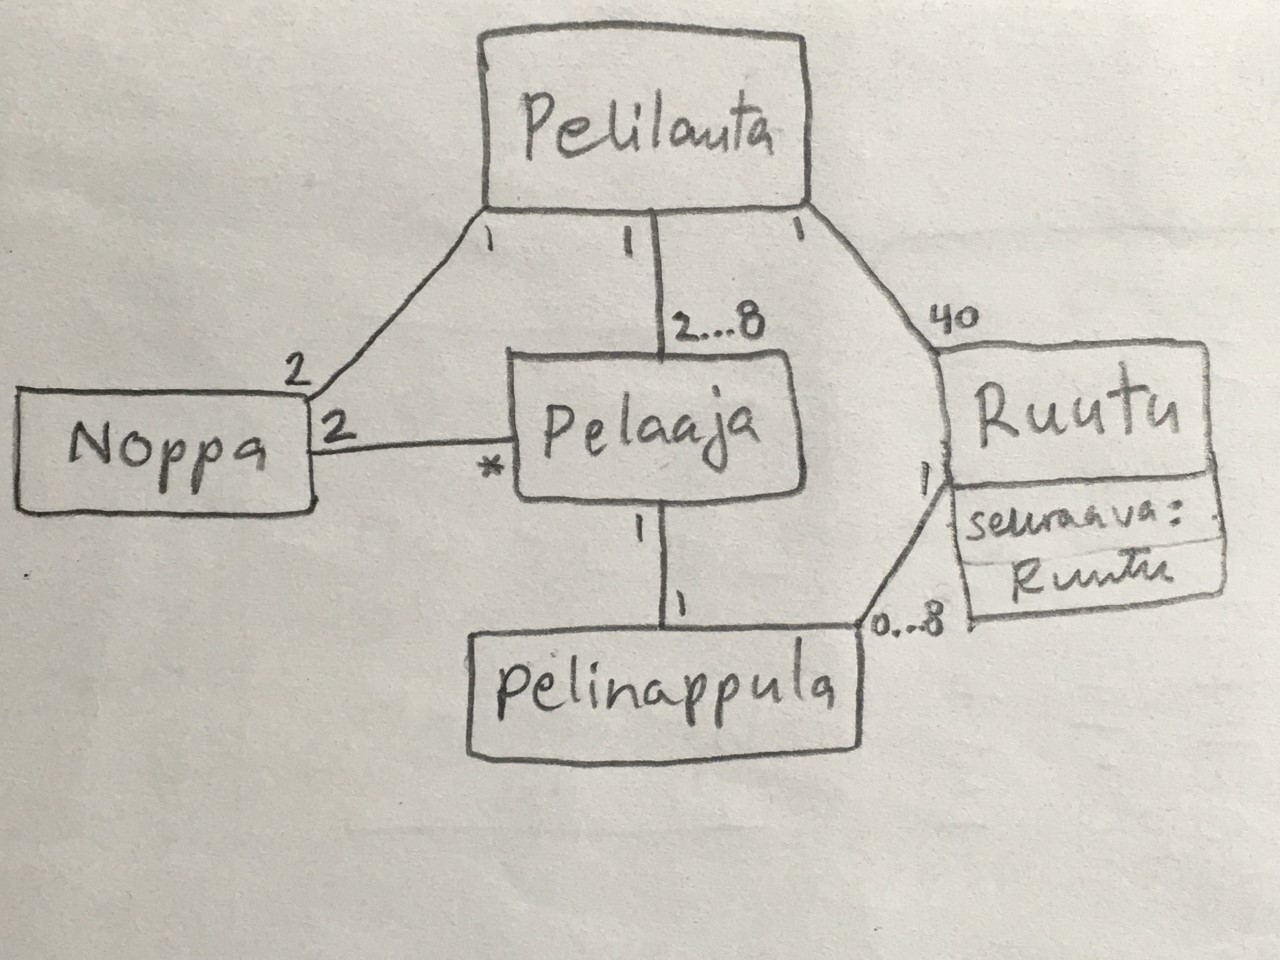 Pelilauta
1
1
1
2...8
40
2
Noppa
2
*
Pelaaja
Ruutu
1
seuraava:
Ruutu
1
1
0...8
pelinappula